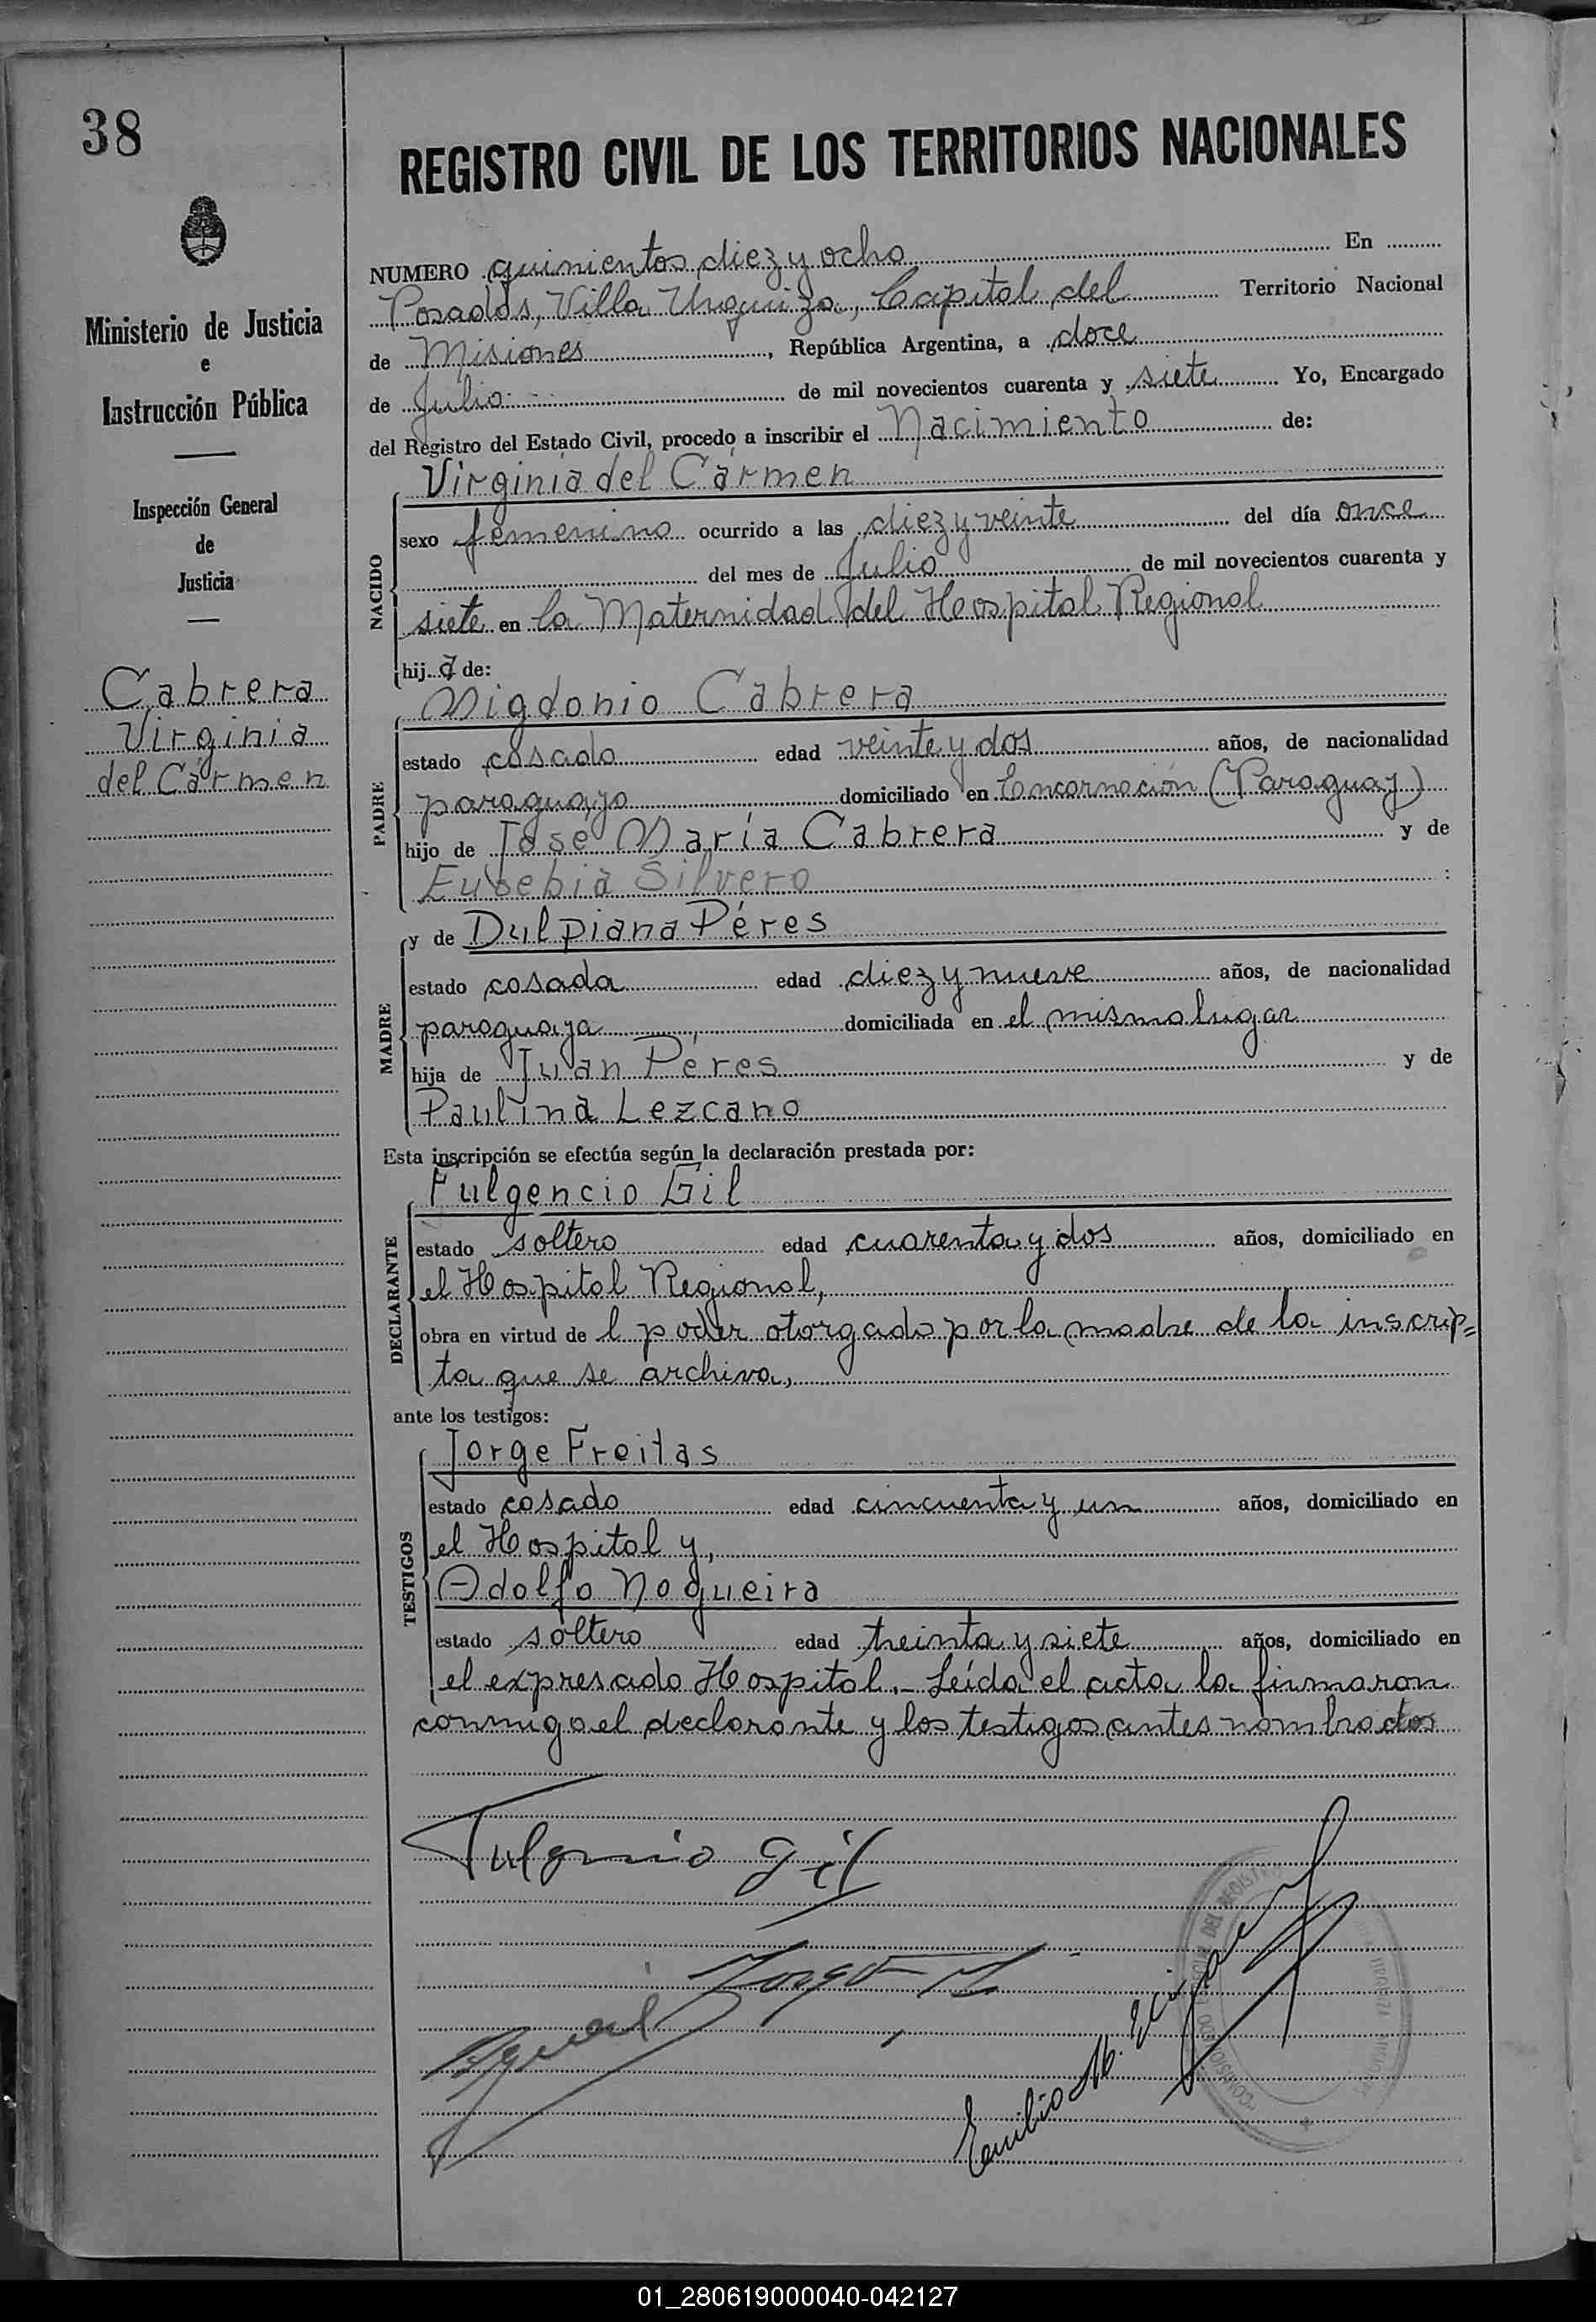 38
Ministerio de Justicia
e
Instrucción Pública
Inspección General
de
Justicia
Cabrera
Virginia
del Cármen
REGISTRO CIVIL DE LOS TERRITORIOS NACIONALES
NUMERO quinientos diez y ocho En
Posadas, Villa Urquiza, Capital del Territorio Nacional
de Misiones, República Argentina, a doce
de Julio de mil novecientos cuarenta y siete Yo, Encargado
del Registro del Estado Civil, procedo a inscribir el Nacimiento de:
NACIDO
Virginia del Cármen
sexo femenino ocurrido a las diez y veinte del día once
del mes de Julio de mil novecientos cuarenta y
siete en la Maternidad del Hospital Regional
hija de:
PADRE
Migdonio Cabrera
estado casado edad veinte y dos años, de nacionalidad
paraguayo domiciliado en Encarnación (Paraguay)
hijo de José María Cabrera y de
Eusebia Silvero
MADRE
y de Dulpiana Péres
estado casada edad diez y nueve años, de nacionalidad
paraguaya domiciliada en el mismo lugar
hija de Juan Péres y de
Paulina Lezcano
Esta inscripción se efectúa según la declaración prestada por:
DECLARANTE
Fulgencio Gil
estado soltero edad cuarenta y dos años, domiciliado en
el Hospital Regional,
obra en virtud de l poder otorgado por la madre de la inscrip=
ta que se archiva,
ante los testigos:
TESTIGOS
Jorge Freitas
estado casado edad cincuenta y un años, domiciliado en
el Hospital y,
Adolfo Nogueira
estado soltero edad treinta y siete años, domiciliado en
el expresado Hospital.- Leída el acta la firmaron
conmigo el declarante y los testigos antes nombrados
Fulgencio Gil
Jorge
Emilio M.
01_280619000040-042127